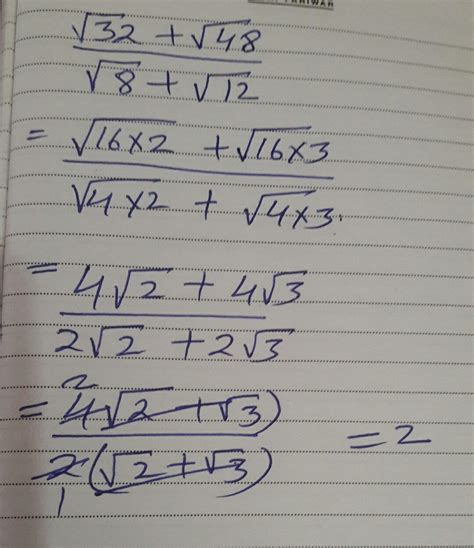 √32 + √48
√8 + √12
= √16×2 + √16×3
√4×2 + √4×3.
= 4√2 + 4√3
2√2 + 2√3
2
= 4√2 + √3) = 2
2(√2 + √3)
1